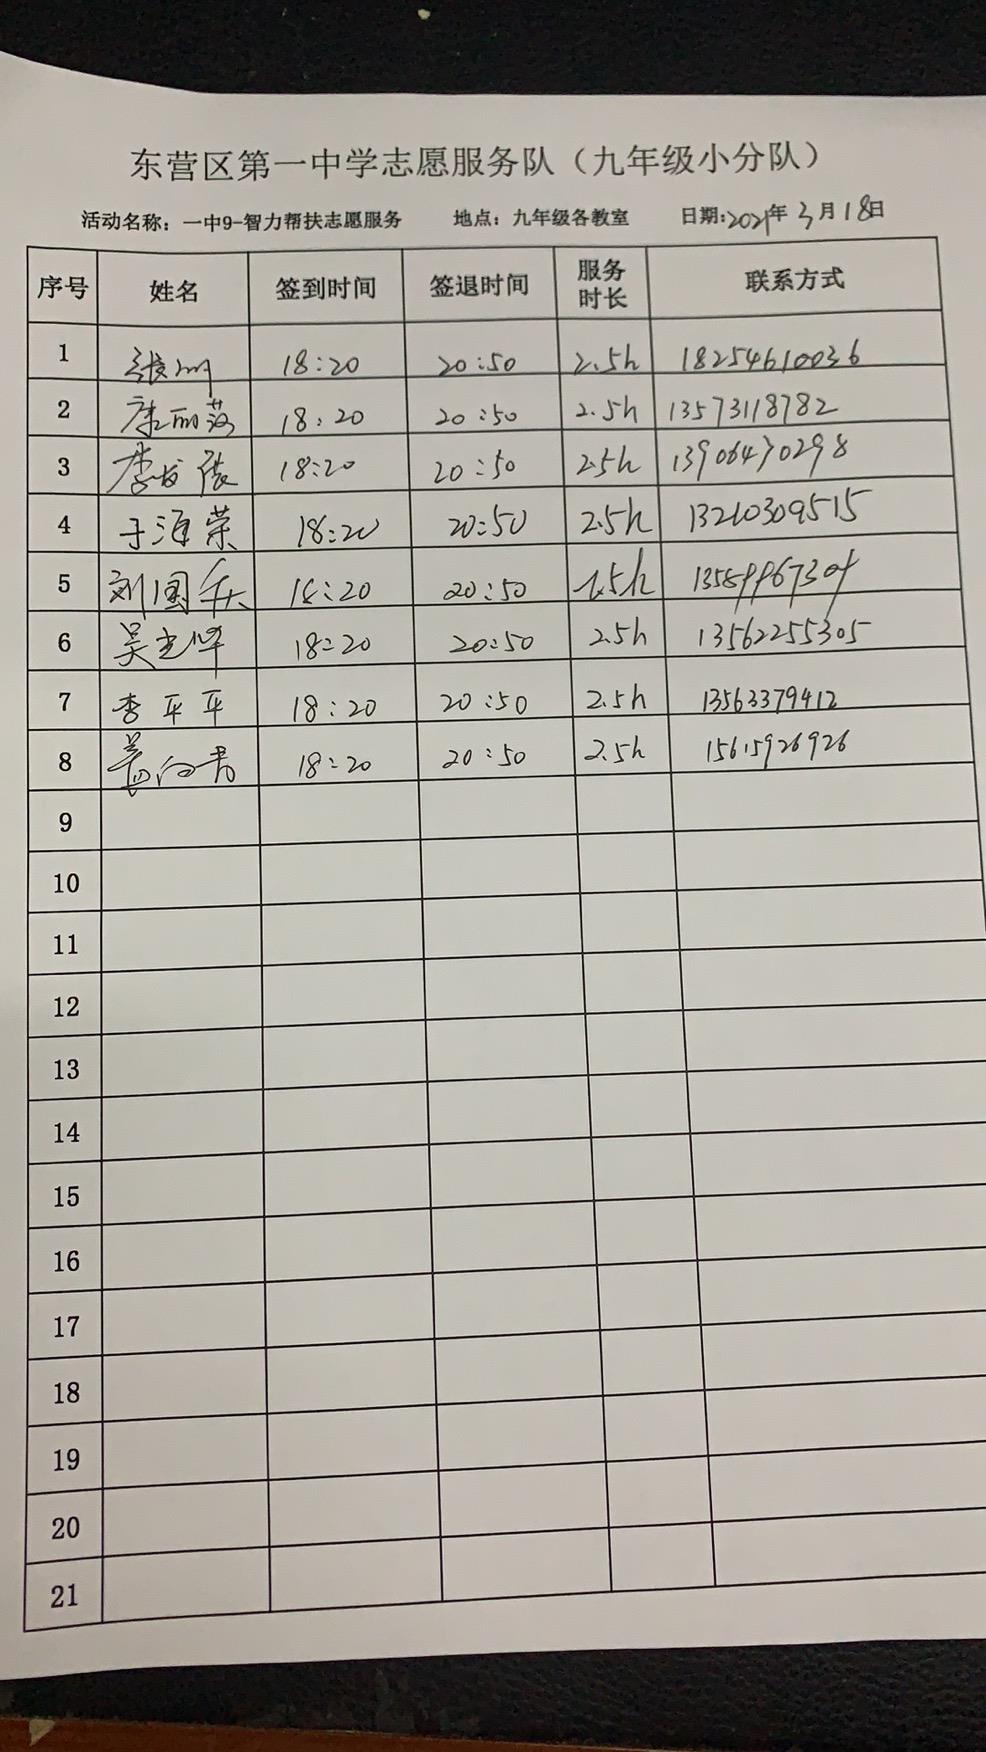 东营区第一中学志愿服务队（九年级小分队）
活动名称：一中9-智力帮扶志愿服务 地点：九年级各教室 日期:2021年3月18日
序号 姓名 签到时间 签退时间 服务时长 联系方式
1 18:20 20:50 2.5h 18254610036
2 18:20 20:50 2.5h 13573118782
3 18:20 20:50 2.5h 13906470298
4 于海荣 18:20 20:50 2.5h 13210309515
5 刘国 18:20 20:50 2.5h
6 吴光 18:20 20:50 2.5h 13562255305
7 李平平 18:20 20:50 2.5h 13563379412
8 18:20 20:50 2.5h 15615926926
9
10
11
12
13
14
15
16
17
18
19
20
21